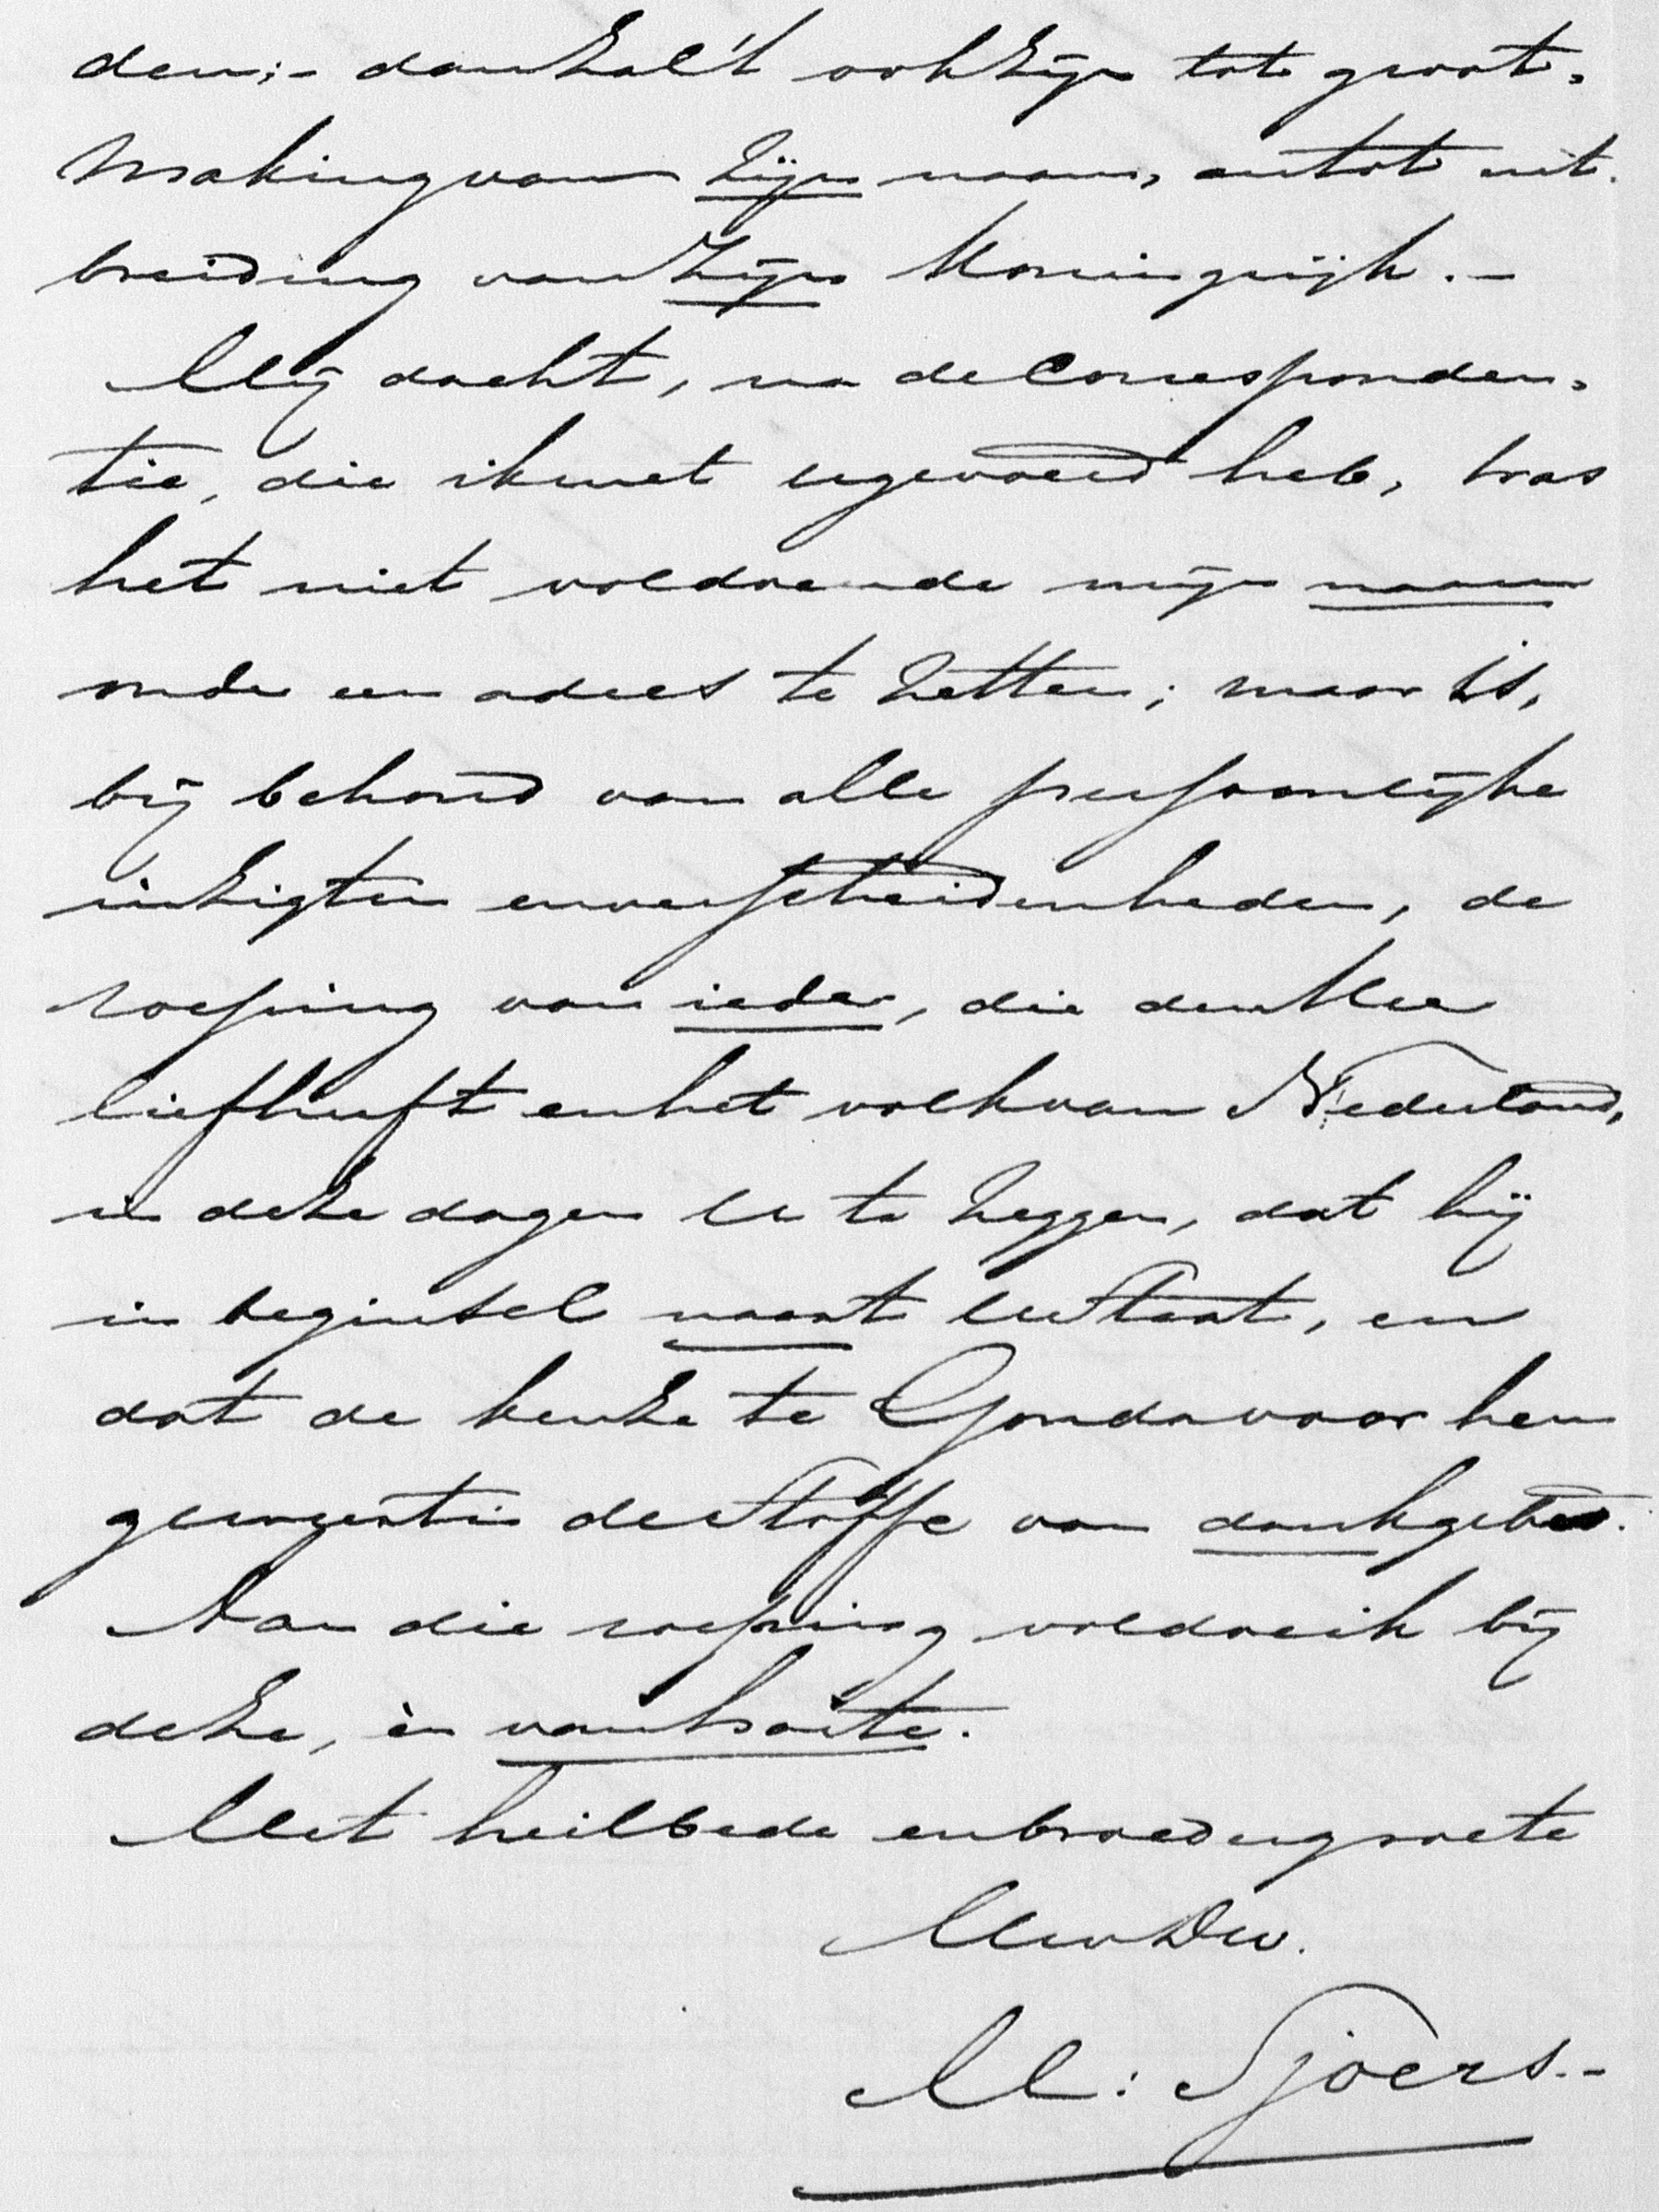 den; - dan zal 't ook zijn tot groot=
making van zijn naam, en tot uit=
breiding van zijn Koningrijk. -
Mij dacht, na de Corresponden=
tie, die ik met u gevoerd heb, was
het niet voldoende mijn naam
onder een adres te zetten; maar is,
bij behoud van alle persoonlijke
inzigten en verscheidenheden, de
roeping van ieder, die den Heer
liefheeft en het volk van Nederland,
in deze dagen U te zeggen, dat hij
in beginsel naast U staat, en
dat de keuze te Gouda voor hem
geworden is de stoffe van dankgebed.
Aan die roeping voldoe ik bij
deze, èn van harte.
Met heilbede en broedergroete
Uw Dw.
M: Sjoers. -